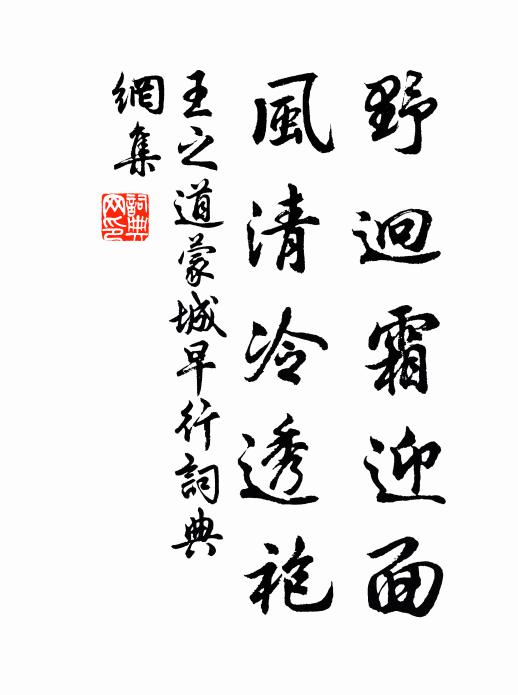 野迥霜迎面
風清冷透袍
王之道蒙城早行詞典
網集
詞典網印